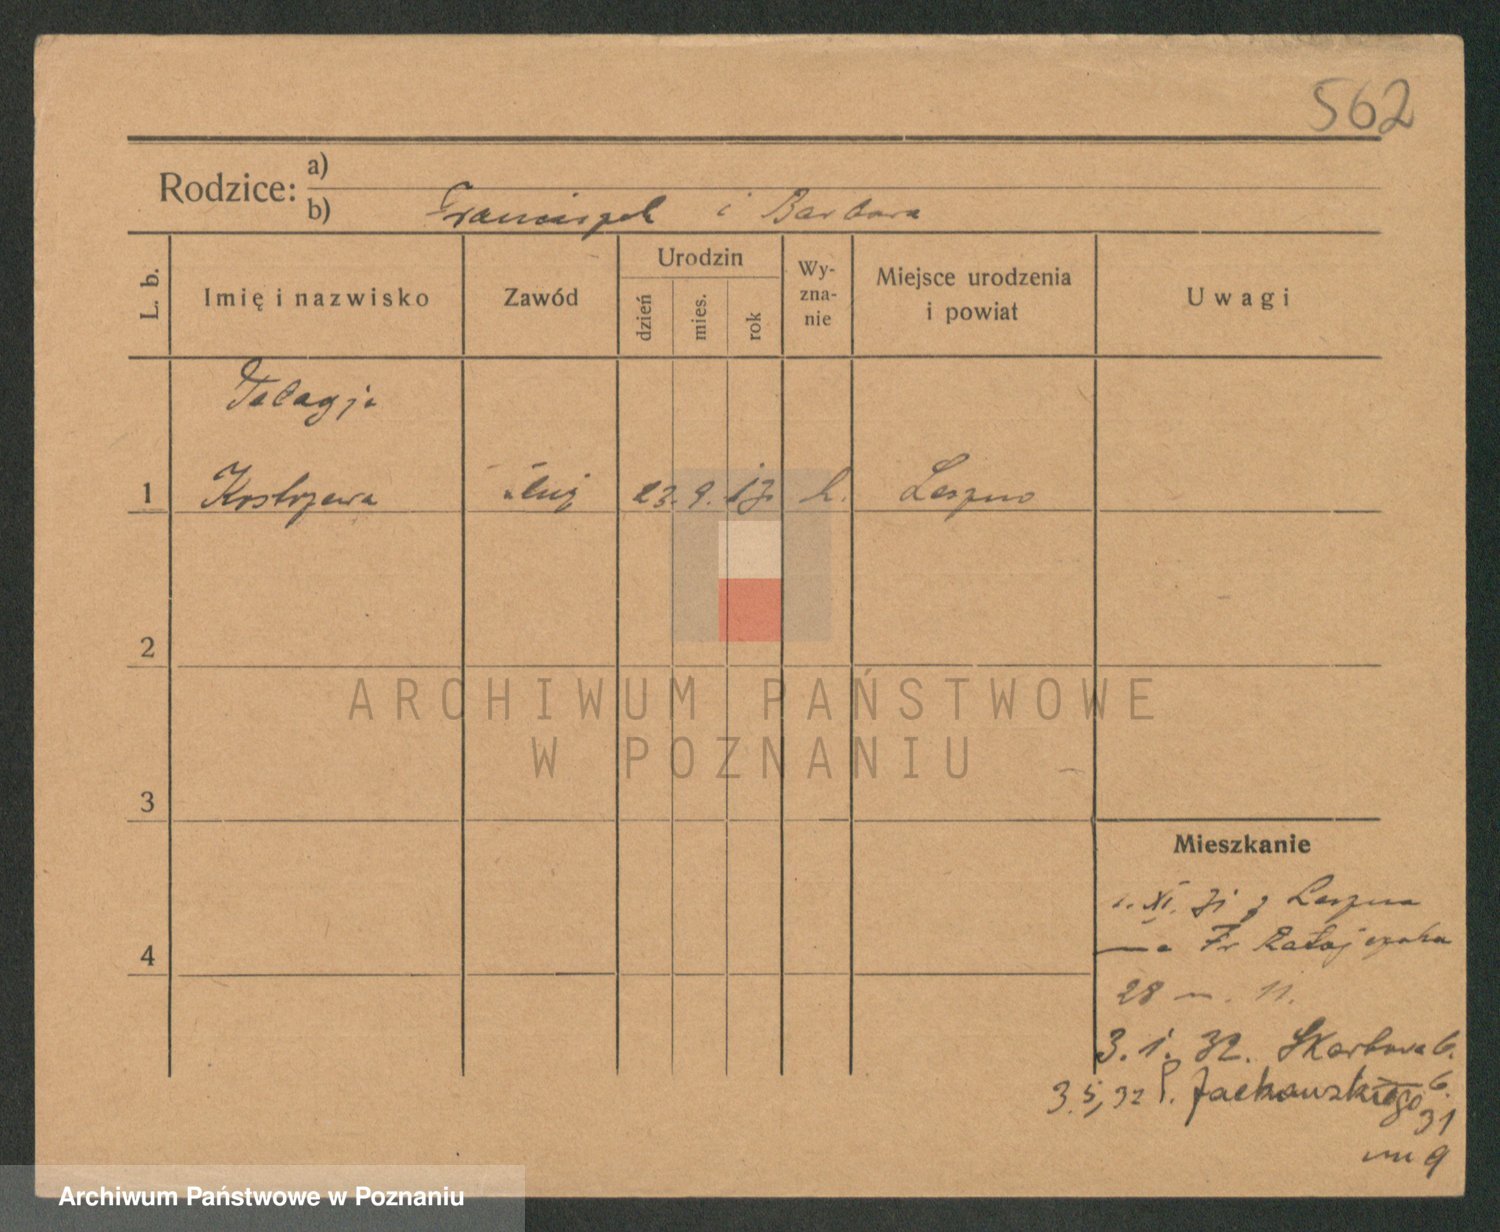 562
Rodzice: a)
b) Franciszek i Barbara
L. b.
Imię i nazwisko
Zawód
Urodzin
dzień
mies.
rok
Wy-
zna-
nie
Miejsce urodzenia
i powiat
Uwagi
1 Kostrzewa 23. 9. k. Leszno
2
3
4
Mieszkanie
1. XI. 31 z Leszna
Fr Ratajczaka
28 m. 11.
3. 1. 32. Skarbowa 6.
3. 5, 32 P. Jackowskiego
31
m 9
ARCHIWUM PAŃSTWOWE
W POZNANIU
Archiwum Państwowe w Poznaniu